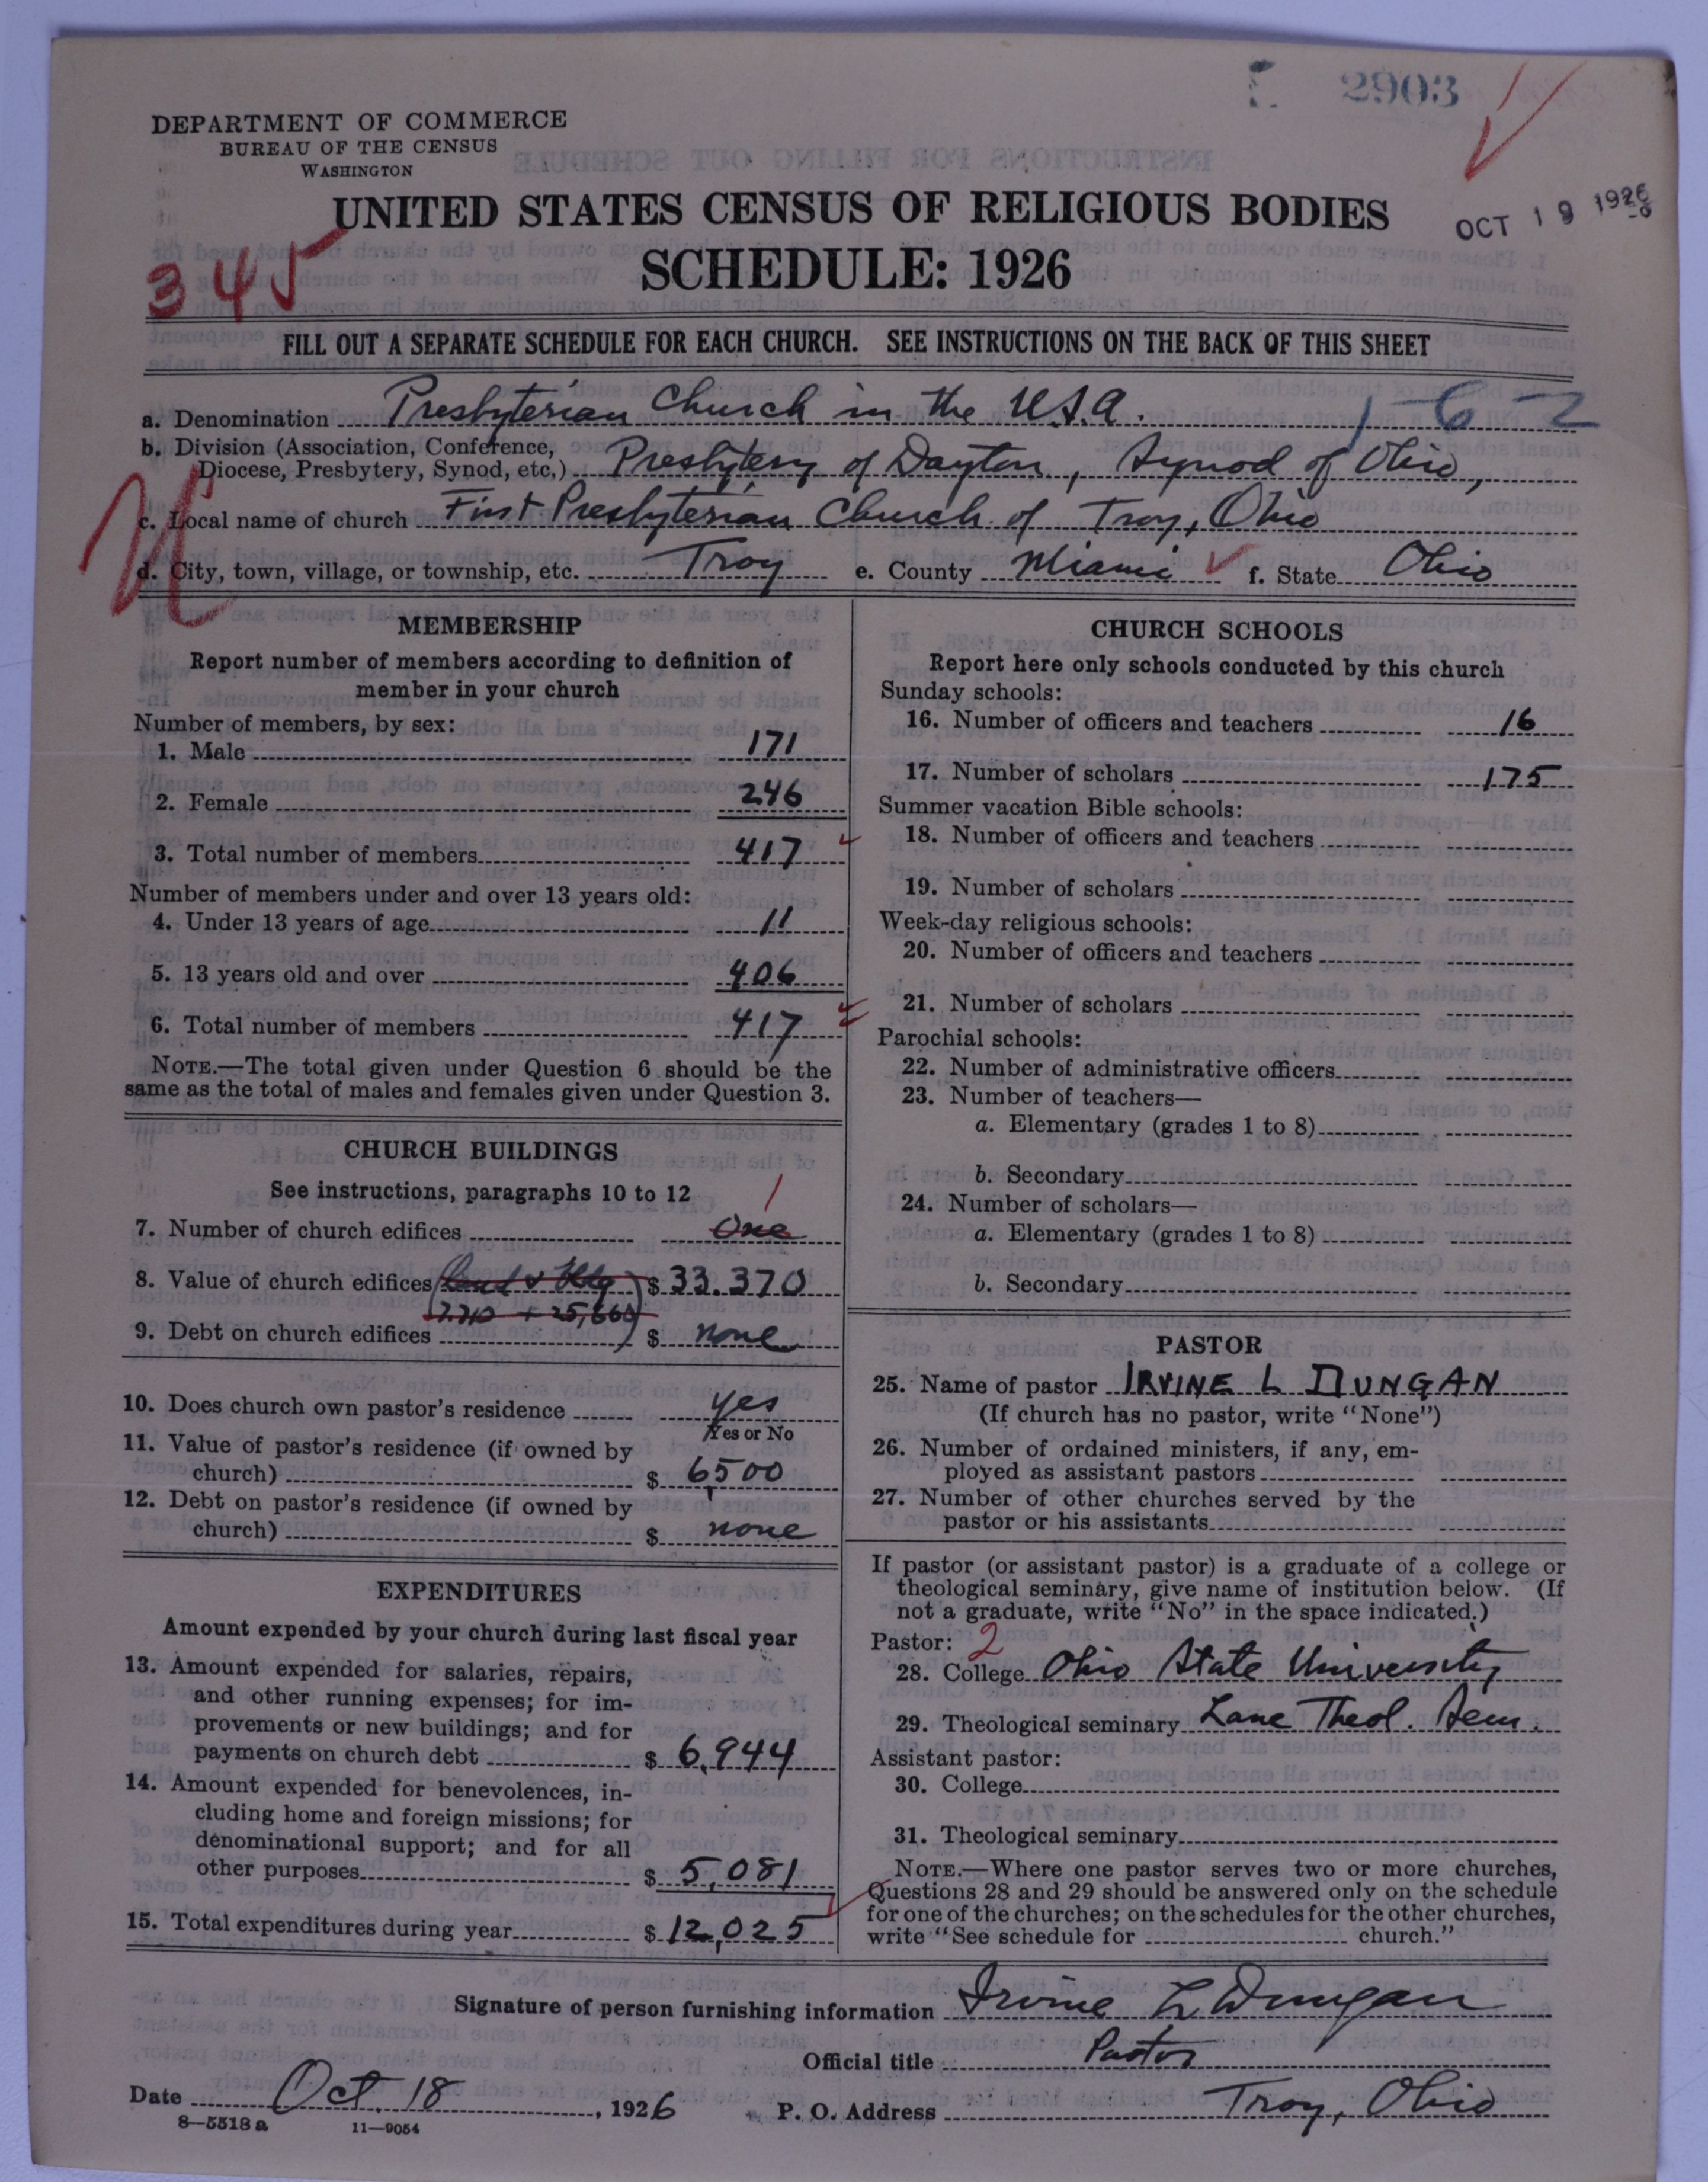 2903
DEPARTMENT OF COMMERCE
BUREAU OF THE CENSUS
WASHINGTON
UNITED STATES CENSUS OF RELIGIOUS BODIES
OCT 19 1926
345
SCHEDULE: 1926
FILL OUT A SEPARATE SCHEDULE FOR EACH CHURCH. SEE INSTRUCTIONS ON THE BACK OF THIS SHEET
a. Denomination Presbyterian Church in the U.S.A. 1-6-2
b. Division (Association, Conference,
Diocese, Presbytery, Synod, etc.) Presbytery of Dayton, Synod of Ohio,
c. Local name of church First Presbyterian Church of Troy, Ohio
d. City, town, village, or township, etc. Troy e. County Miami f. State Ohio
MEMBERSHIP
Report number of members according to definition of
member in your church
Number of members, by sex:
1. Male 171
2. Female 246
3. Total number of members 417
Number of members under and over 13 years old:
4. Under 13 years of age 11
5. 13 years old and over 406
6. Total number of members 417
NOTE.—The total given under Question 6 should be the
same as the total of males and females given under Question 3.
CHURCH BUILDINGS
See instructions, paragraphs 10 to 12
1
7. Number of church edifices One
8. Value of church edifices (Land & Bldg) $ 33.370
9. Debt on church edifices $ none
10. Does church own pastor's residence yes
Yes or No
11. Value of pastor's residence (if owned by
church) $ 6500
12. Debt on pastor's residence (if owned by
church) $ none
EXPENDITURES
Amount expended by your church during last fiscal year
13. Amount expended for salaries, repairs,
and other running expenses; for im-
provements or new buildings; and for
payments on church debt $ 6,944
14. Amount expended for benevolences, in-
cluding home and foreign missions; for
denominational support; and for all
other purposes $ 5,081
15. Total expenditures during year $ 12,025
CHURCH SCHOOLS
Report here only schools conducted by this church
Sunday schools:
16. Number of officers and teachers 16
17. Number of scholars 175
Summer vacation Bible schools:
18. Number of officers and teachers
19. Number of scholars
Week-day religious schools:
20. Number of officers and teachers
21. Number of scholars
Parochial schools:
22. Number of administrative officers
23. Number of teachers—
a. Elementary (grades 1 to 8)
b. Secondary
24. Number of scholars—
a. Elementary (grades 1 to 8)
b. Secondary
PASTOR
25. Name of pastor IRVINE L DUNGAN
(If church has no pastor, write "None")
26. Number of ordained ministers, if any, em-
ployed as assistant pastors
27. Number of other churches served by the
pastor or his assistants
If pastor (or assistant pastor) is a graduate of a college or
theological seminary, give name of institution below. (If
not a graduate, write "No" in the space indicated.)
Pastor: 2
28. College Ohio State University
29. Theological seminary Lane Theol. Sem.
Assistant pastor:
30. College
31. Theological seminary
NOTE.—Where one pastor serves two or more churches,
Questions 28 and 29 should be answered only on the schedule
for one of the churches; on the schedules for the other churches,
write "See schedule for church."
Signature of person furnishing information Irvine L Dungan
Official title Pastor
Date Oct. 18, 1926 P. O. Address Troy, Ohio
8—5518a 11—9054